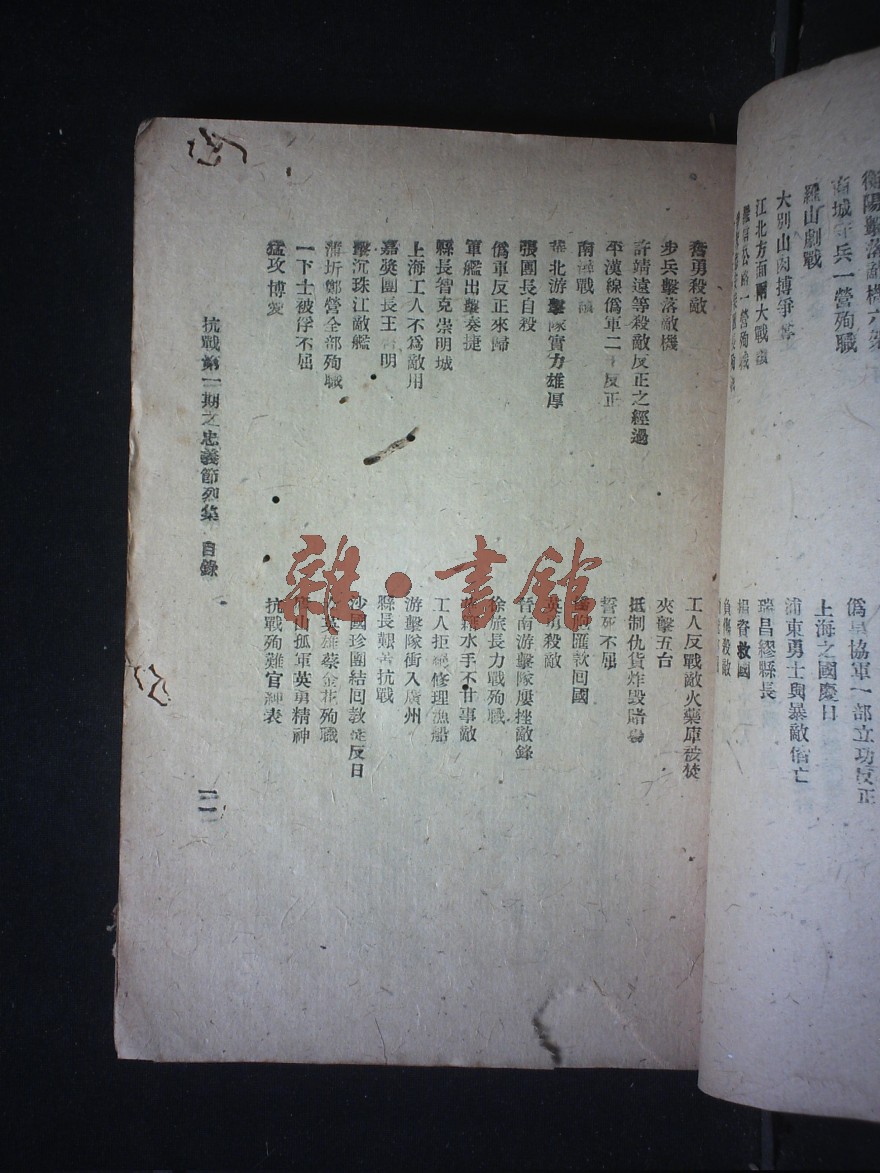 衡陽擊落敵機六架
商城守兵一營殉職
羅山劇戰
大別山肉搏爭奪
江北方面兩大戰
公路一營殉職
偽皇協軍一部立功反正
上海之國慶日
浦東勇士與暴敵偕亡
瑞昌繆縣長
捐資救國
負傷殺敵
奮勇殺敵
步兵擊落敵機
許靖遠等殺敵反正之經過
平漢線偽軍二千反正
南潯戰
華北游擊隊實力雄厚
張團長自殺
偽軍反正來歸
軍艦出擊奏捷
縣長智克崇明城
上海工人不為敵用
嘉獎團長王明
擊沉珠江敵艦
蒲圻鄭營全部殉職
一下士被俘不屈
猛攻博愛
工人反戰敵火藥庫被焚
夾擊五台
抵制仇貨炸毀賭
誓死不屈
匯款回國
英勇殺敵
晉南游擊隊屢挫敵鋒
徐旅長力戰殉職
水手不甘事敵
工人拒絕修理漁船
游擊隊衝入廣州
縣長艱苦抗戰
沙國珍團結回教徒反日
英雄蔡金花殉職
山孤軍英勇精神
抗戰殉難官紳表
抗戰第一期之忠義節烈集 目錄